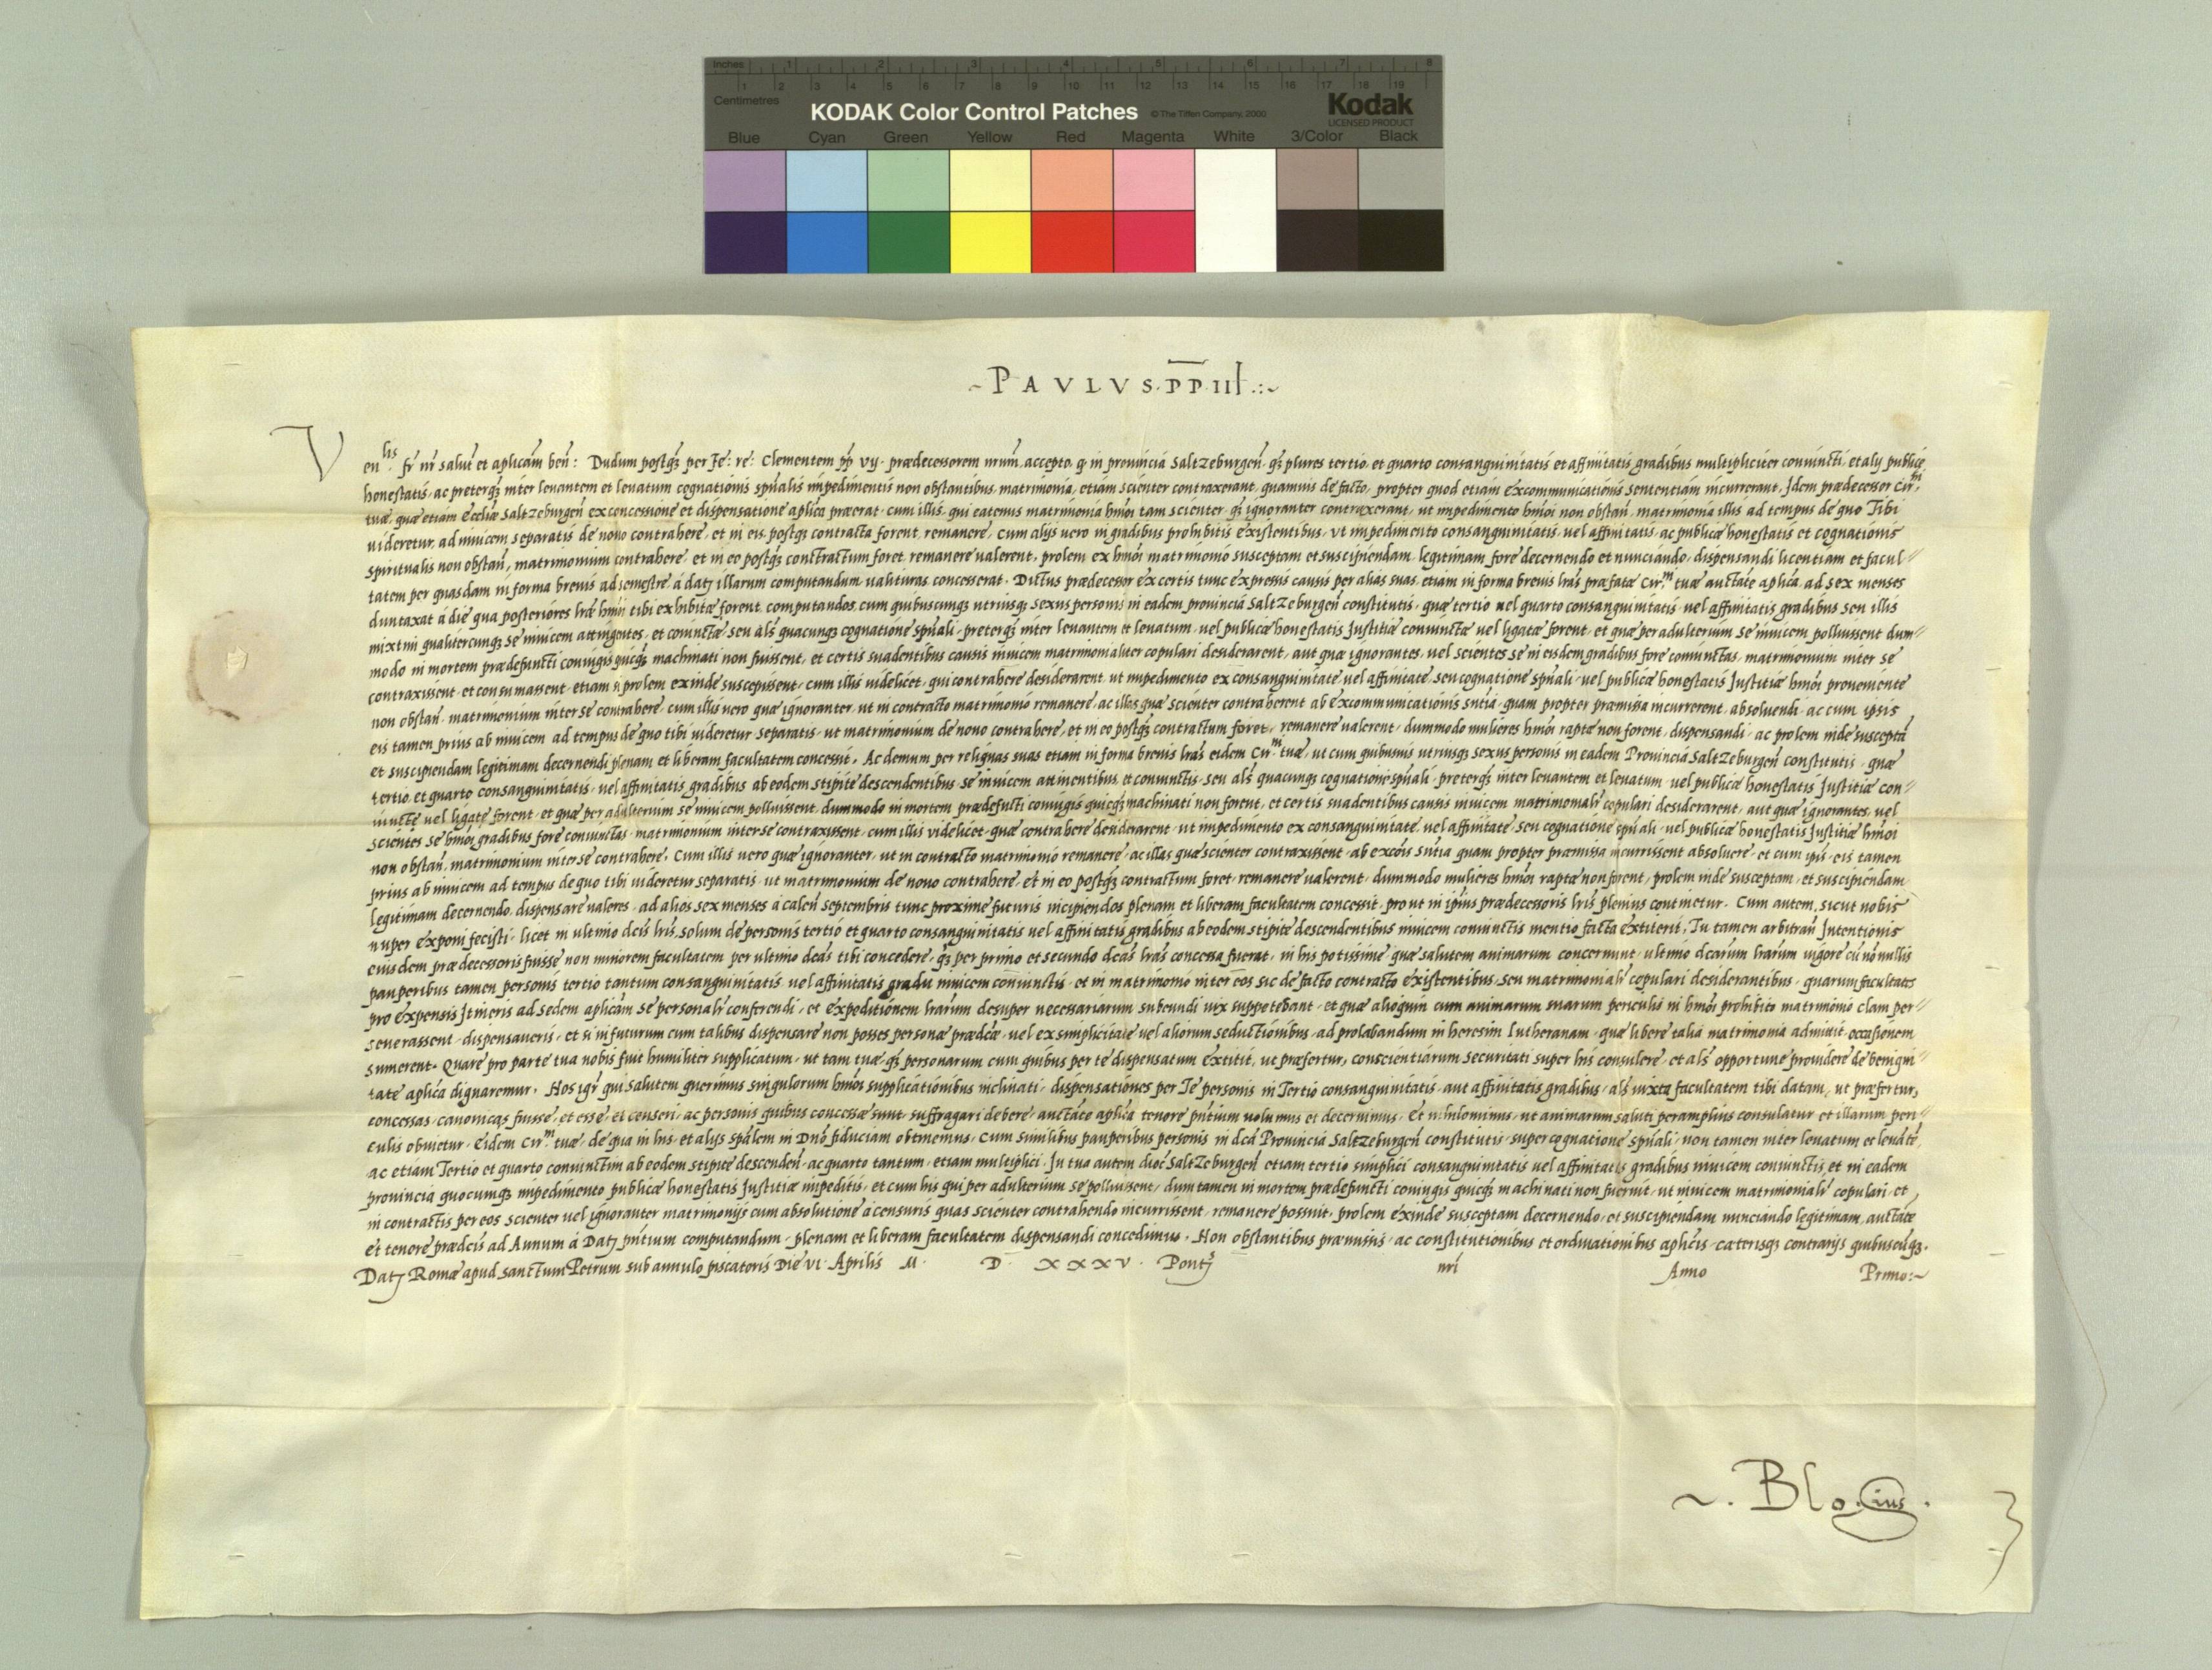 Inches 1 2 3 4 5 6 7 8
1 2 3 4 5 6 7 8 9 10 11 12 13 14 15 16 17 18 19
Centimetres
KODAK Color Control Patches © The Tiffen Company, 2000 Kodak
LICENSED PRODUCT
Blue Cyan Green Yellow Red Magenta White 3/Color Black
~PAVLVS.PP.III.:~
Venlis fr nr salut et aplicam ben: Dudum postqz per fe: re: Clementem pp vij. prædecessorem nrum, accepto, q in prouincia Saltzeburgen qz plures tertio, et quarto consanguinitatis et affinitatis gradibus multipliciter coniuncti, et alij publice
honestatis, ac preterqz inter leuantem et leuatum cognationis spualis impedimentis non obstantibus, matrimonia, etiam scienter contraxerant, quamuis de facto, propter quod etiam excommunicationis sententiam incurrerant, Idem prædecessor Cir.m
tuæ, quæ etiam Eccliæ Saltzeburgen ex concessione et dispensatione aplica præerat, cum illis, qui eatenus matrimonia hmoi tam scienter, qz ignoranter contraxerant, ut impedimento hmoi non obstan, matrimonia illis ad tempus de quo Tibi
uideretur, ad inuicem separatis de nouo contrahere, et in eis postqz contracta forent, remanere, cum alijs uero in gradibus prohibitis existentibus, ut impedimento consanguinitatis, uel affinitatis, ac publicæ honestatis et cognationis
spiritualis non obstan, matrimonium contrahere, et in eo postqz contractum foret, remanere ualerent, prolem ex hmoi matrimonio susceptam et suscipiendam, legitimam fore decernendo et nunciando, dispensandi licentiam et facul-
tatem per quasdam in forma breuis ad semestre a dat illarum computandum ualituras concesserat. Dictus prædecessor ex certis tunc expressis causis per alias suas, etiam in forma breuis lras præfatæ Cir.m tuæ auctate aplica, ad sex menses
duntaxat a die qua posteriores lræ hmoi tibi exhibitæ forent, computandos, cum quibuscunqz utriusqz sexus personis in eadem prouincia Saltzeburgen constitutis, quæ tertio uel quarto consanguinitatis uel affinitatis gradibus seu illis
mixtim qualitercunqz se inuicem attingentes, et coniunctæ, seu als quacunqz cognatione spuali, preterqz inter leuantem et leuatum, uel publicæ honestatis Justitiæ coniunctæ uel ligatæ forent, et quæ per adulterium se inuicem polluissent dum-
modo in mortem prædefuncti coniugis quicqz machinati non fuissent, et certis suadentibus causis inuicem matrimonialiter copulari desiderarent, aut quæ ignorantes, uel scientes se in eisdem gradibus fore coniunctas, matrimonium inter se
contraxissent, et consumassent, etiam si prolem exinde suscepissent, cum illis uidelicet, qui contrahere desiderarent, ut impedimento ex consanguinitate uel affinitate, seu cognatione spuali, uel publicæ honestatis Justitiæ hmoi proueniente
non obstan, matrimonium inter se contrahere, cum illis uero quæ ignoranter, ut in contracto matrimonio remanere, ac illas quæ scienter contraherent ab excommunicationis sntia, quam propter præmissa incurrerent, absoluendi, ac cum ipsis
eis tamen prius ab inuicem ad tempus de quo tibi uideretur separatis, ut matrimonium de nouo contrahere, et in eo postqz contractum foret, remanere ualerent, dummodo mulieres hmoi raptæ non forent, dispensandi, ac prolem inde suscepta
et suscipiendam legitimam decernendi plenam et liberam facultatem concessit. Ac demum per reliquas suas etiam in forma breuis lras eidem Cir.m tuæ, ut cum quibusuis utriusqz sexus personis in eadem Prouincia Saltzeburgen constitutis, quæ
tertio, et quarto consanguinitatis, uel affinitatis gradibus ab eodem stipite descendentibus se inuicem attinentibus, et coniunctis, seu als quacunqz cognatione spuali, preterqz inter leuantem et leuatum, uel publicæ honestatis Justitiæ con-
iunctæ uel ligatæ forent, et quæ per adulterium se inuicem polluissent, dummodo in mortem prædefuncti coniugis quicqz machinati non forent, et certis suadentibus causis inuicem matrimonialr copulari desiderarent, aut quæ ignorantes, uel
scientes se hmoi gradibus fore coniunctas, matrimonium inter se contraxissent, cum illis videlicet, quæ contrahere desiderarent, ut impedimento ex consanguinitate, uel affinitate, seu cognatione spuali, uel publicæ honestatis Justitiæ hmoi
non obstan, matrimonium inter se contrahere, Cum illis uero quæ ignoranter, ut in contracto matrimonio remanere, ac illas quæ scienter contraxissent, ab excois sntia quam propter præmissa incurrissent absoluere, et cum ipsis, eis tamen
prius ab inuicem ad tempus de quo tibi uideretur separatis, ut matrimonium de nouo contrahere, et in eo postqz contractum foret, remanere ualerent, dummodo mulieres hmoi raptæ non forent, prolem inde susceptam, et suscipiendam
legitimam decernendo, dispensare ualeres, ad alios sex menses a calen Septembris tunc proxime futuris incipiendos plenam et liberam facultatem concessit, prout in ipsius prædecessoris lris plenius continetur. Cum autem, sicut nobis
nuper exponi fecisti, licet in ultimo dcis lris, solum de personis tertio et quarto consanguinitatis uel affinitatis gradibus ab eodem stipite descendentibus inuicem coniunctis mentio facta extiterit, Tu tamen arbitran Intentionis
eiusdem prædecessoris fuisse non minorem facultatem per ultimo dcas tibi concedere, qz per primo et secundo dcas lras concessa fuerat, in his potissime quæ salutem animarum concernunt, ultimo dcarum lrarum uigore cu nonnullis
pauperibus tamen personis tertio tantum consanguinitatis, uel affinitatis gradu inuicem coniunctis, et in matrimonio inter eos sic de facto contracto existentibus, seu matrimonialr copulari desiderantibus, quarum facultates
pro expensis Itineris ad sedem aplicam se personalr conferendi, et expeditionem lrarum desuper necessariarum subeundi uix suppetebant, et quæ alioquin cum animarum suarum periculis in hmoi prohibito matrimonio clam per-
seuerassent, dispensaueris, et si in futurum cum talibus dispensare non posses personæ prædcæ, uel ex simplicitate uel aliorum seductionibus, ad prolabandum in heresim Lutheranam, quæ libere talia matrimonia admittit, occasionem
sumerent. Quare pro parte tua nobis fuit humiliter supplicatum, ut tam tuæ, qz personarum cum quibus per te dispensatum extitit, ut præfertur, conscientiarum securitati super his consulere, et als opportune prouidere de benigni-
tate aplica dignaremur. Nos igr qui salutem querimus singulorum hmoi supplicationibus inclinati, dispensationes per Te personis in Tertio consanguinitatis, aut affinitatis gradibus, als iuxta facultatem tibi datam, ut præfertur,
concessas, canonicas fuisse, et esse, et censeri, ac personis quibus concessæ sunt, suffragari debere, auctate aplica tenore pntium uolumus et decernimus, Et nihilominus, ut animarum saluti peramplius consulatur et illarum peri-
culis obuietur, Eidem Cir.m tuæ, de qua in his, et alijs spalem in Dno fiduciam obtinemus, Cum similibus pauperibus personis in dca Prouincia Saltzeburgen constitutis, super cognatione spuali, non tamen inter leuatum et leuate,
ac etiam Tertio et quarto coniunctim ab eodem stipite descenden, ac quarto tantum, etiam multiplici, In tua autem dioc Saltzeburgen etiam tertio simplici consanguinitatis uel affinitatis gradibus inuicem coniunctis, et in eadem
prouincia quocumqz impedimento publicæ honestatis Justitiæ impeditis, et cum his qui per adulterium se polluissent, dum tamen in mortem prædefuncti coniugis quicqz machinati non fuerint, ut inuicem matrimonialr copulari, et
in contractis per eos scienter uel ignoranter matrimonijs cum absolutione a censuris quas scienter contrahendo incurrissent, remanere possint, prolem exinde susceptam decernendo, et suscipiendam nunciando legitimam, auctate
et tenore prædcis ad Annum a Dat pntium computandum, plenam et liberam facultatem dispensandi concedimus. Non obstantibus præmissis, ac constitutionibus et ordinationibus aplicis, cæterisqz contrarijs quibuscuqz.
Dat Romæ apud Sanctum Petrum sub annulo piscatoris Die vi Aprilis M. D. XXXV. Pont nri Anno Primo:~
~. Blosius.